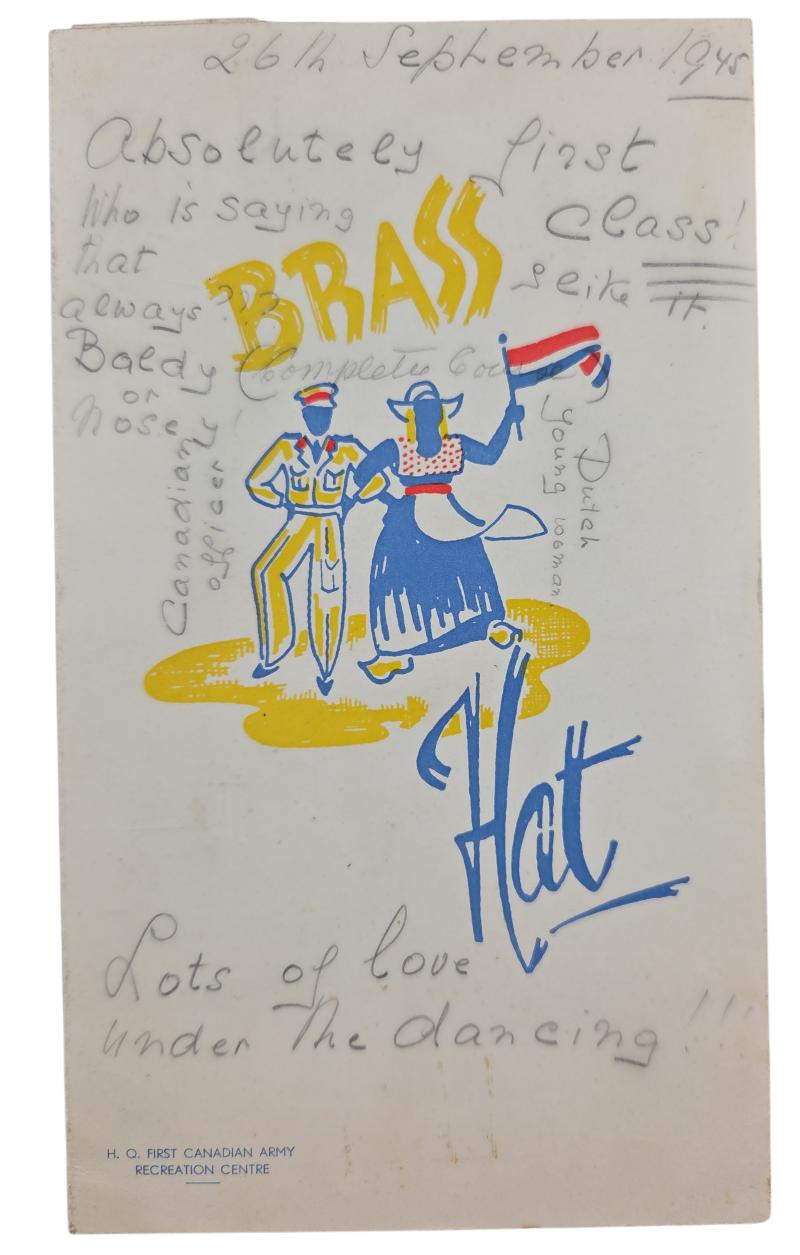 26th September 1945
Absolutely first
Class!
Who is saying
that
always???
seike it.
BRASS
Baldy (Complete Course)
or
Nosey!
Canadian
officer
Dutch
young woman.
Hat
Lots of love
under the dancing!!!
H. Q. FIRST CANADIAN ARMY
RECREATION CENTRE